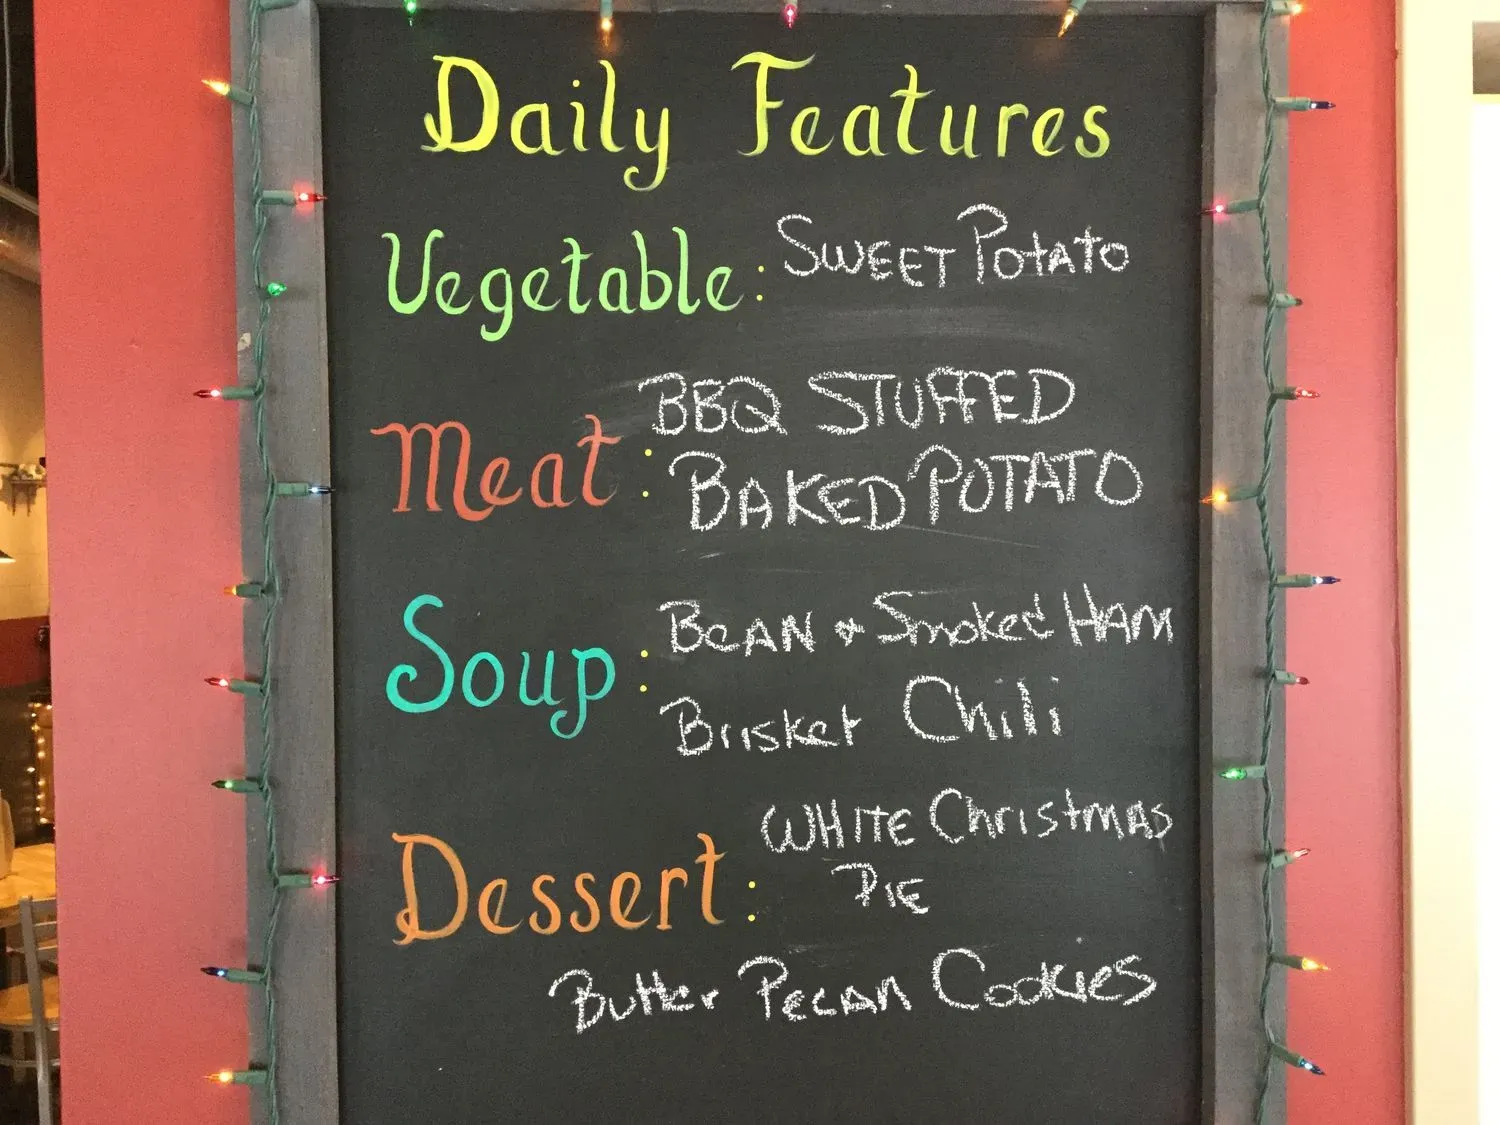 Daily Features
Vegetable: SWEET POTATO
Meat: BBQ STUFFED
BAKED POTATO
Soup: BEAN & Smoked HAM
Brisket Chili
Dessert: WHITE Christmas
PIE
Butter PECAN COOKIES